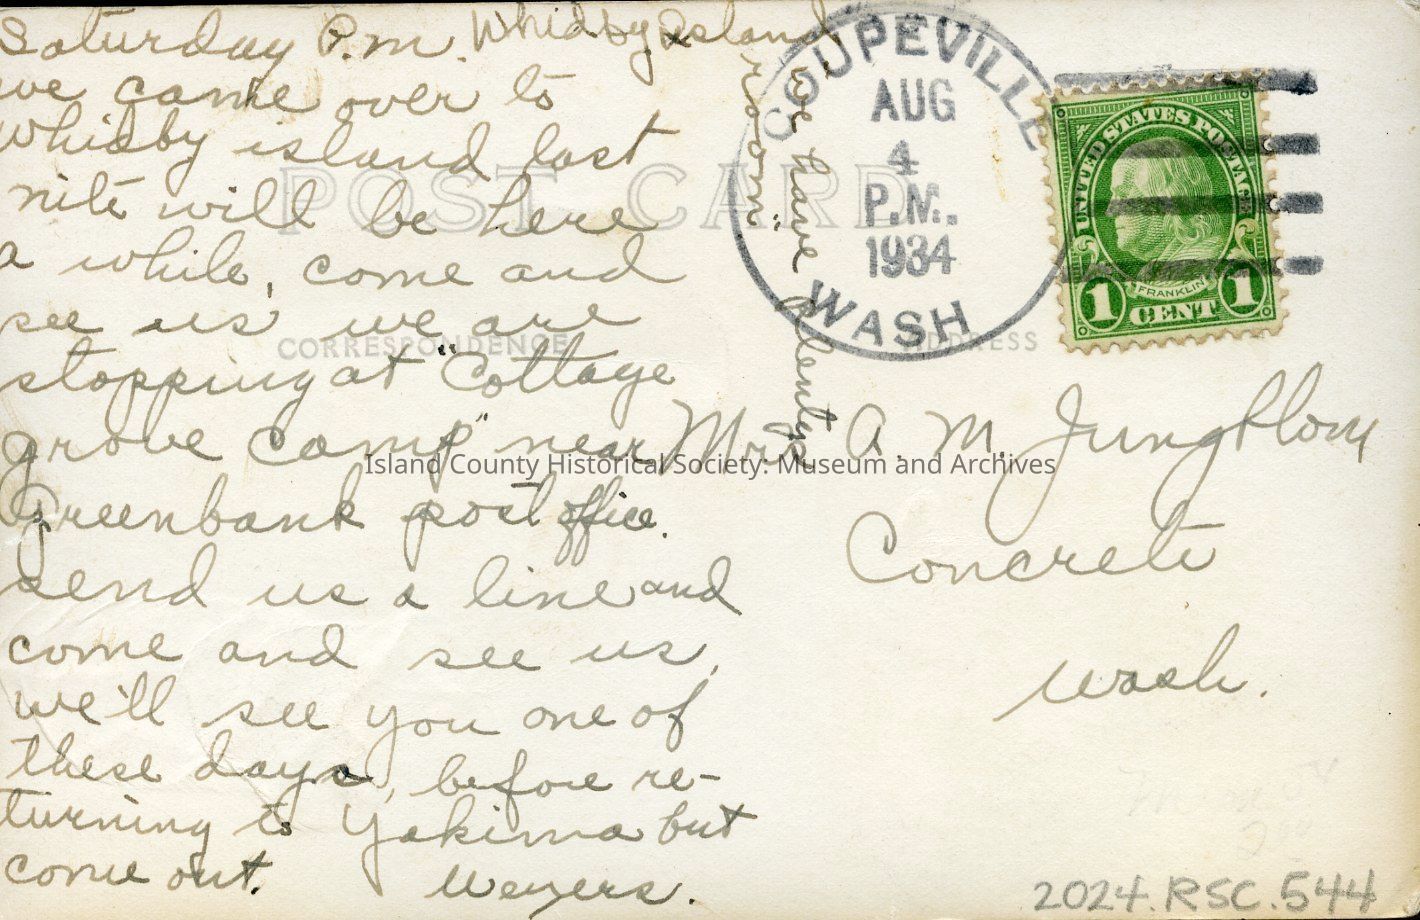 Saturday P.m. Whidby Island
we came over to
Whidby island last
nite will be here
a while, come and
see us, we are
stopping at "Cottage
grove camp" near
Greenbank post office.
send us a line and
come and see us,
we'll see you one of
these days, before re-
turning to Yakima but
come out. Weyers.
we have plenty
room"
POST CARD
CORRESPONDENCE
ADDRESS
COUPEVILLE
AUG
4
P.M.
1934
WASH
UNITED STATES POSTAGE
FRANKLIN
1 CENT 1
Mrs A. M. Jungblom
Concrete
Wash.
Island County Historical Society: Museum and Archives
2024.RSC.544